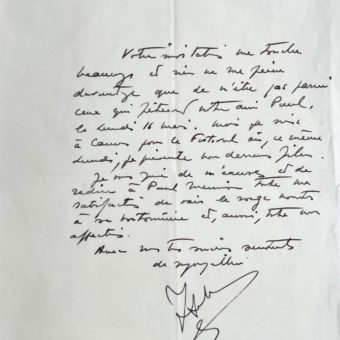 Votre invitation me touche
beaucoup et rien ne me peine
davantage que de n'être pas parmi
ceux qui fêteront notre ami Paul,
le lundi 16 mai. mais je suis
à Cannes pour le Festival où, ce même
lundi, je présente mon dernier film.
Je vous prie de m'excuser et de
redire à Paul Meurisse toute ma
satisfaction de voir le rouge monter
à sa boutonnière et, aussi, toute mon
affection.
Avec mes très sincères sentiments
de sympathie